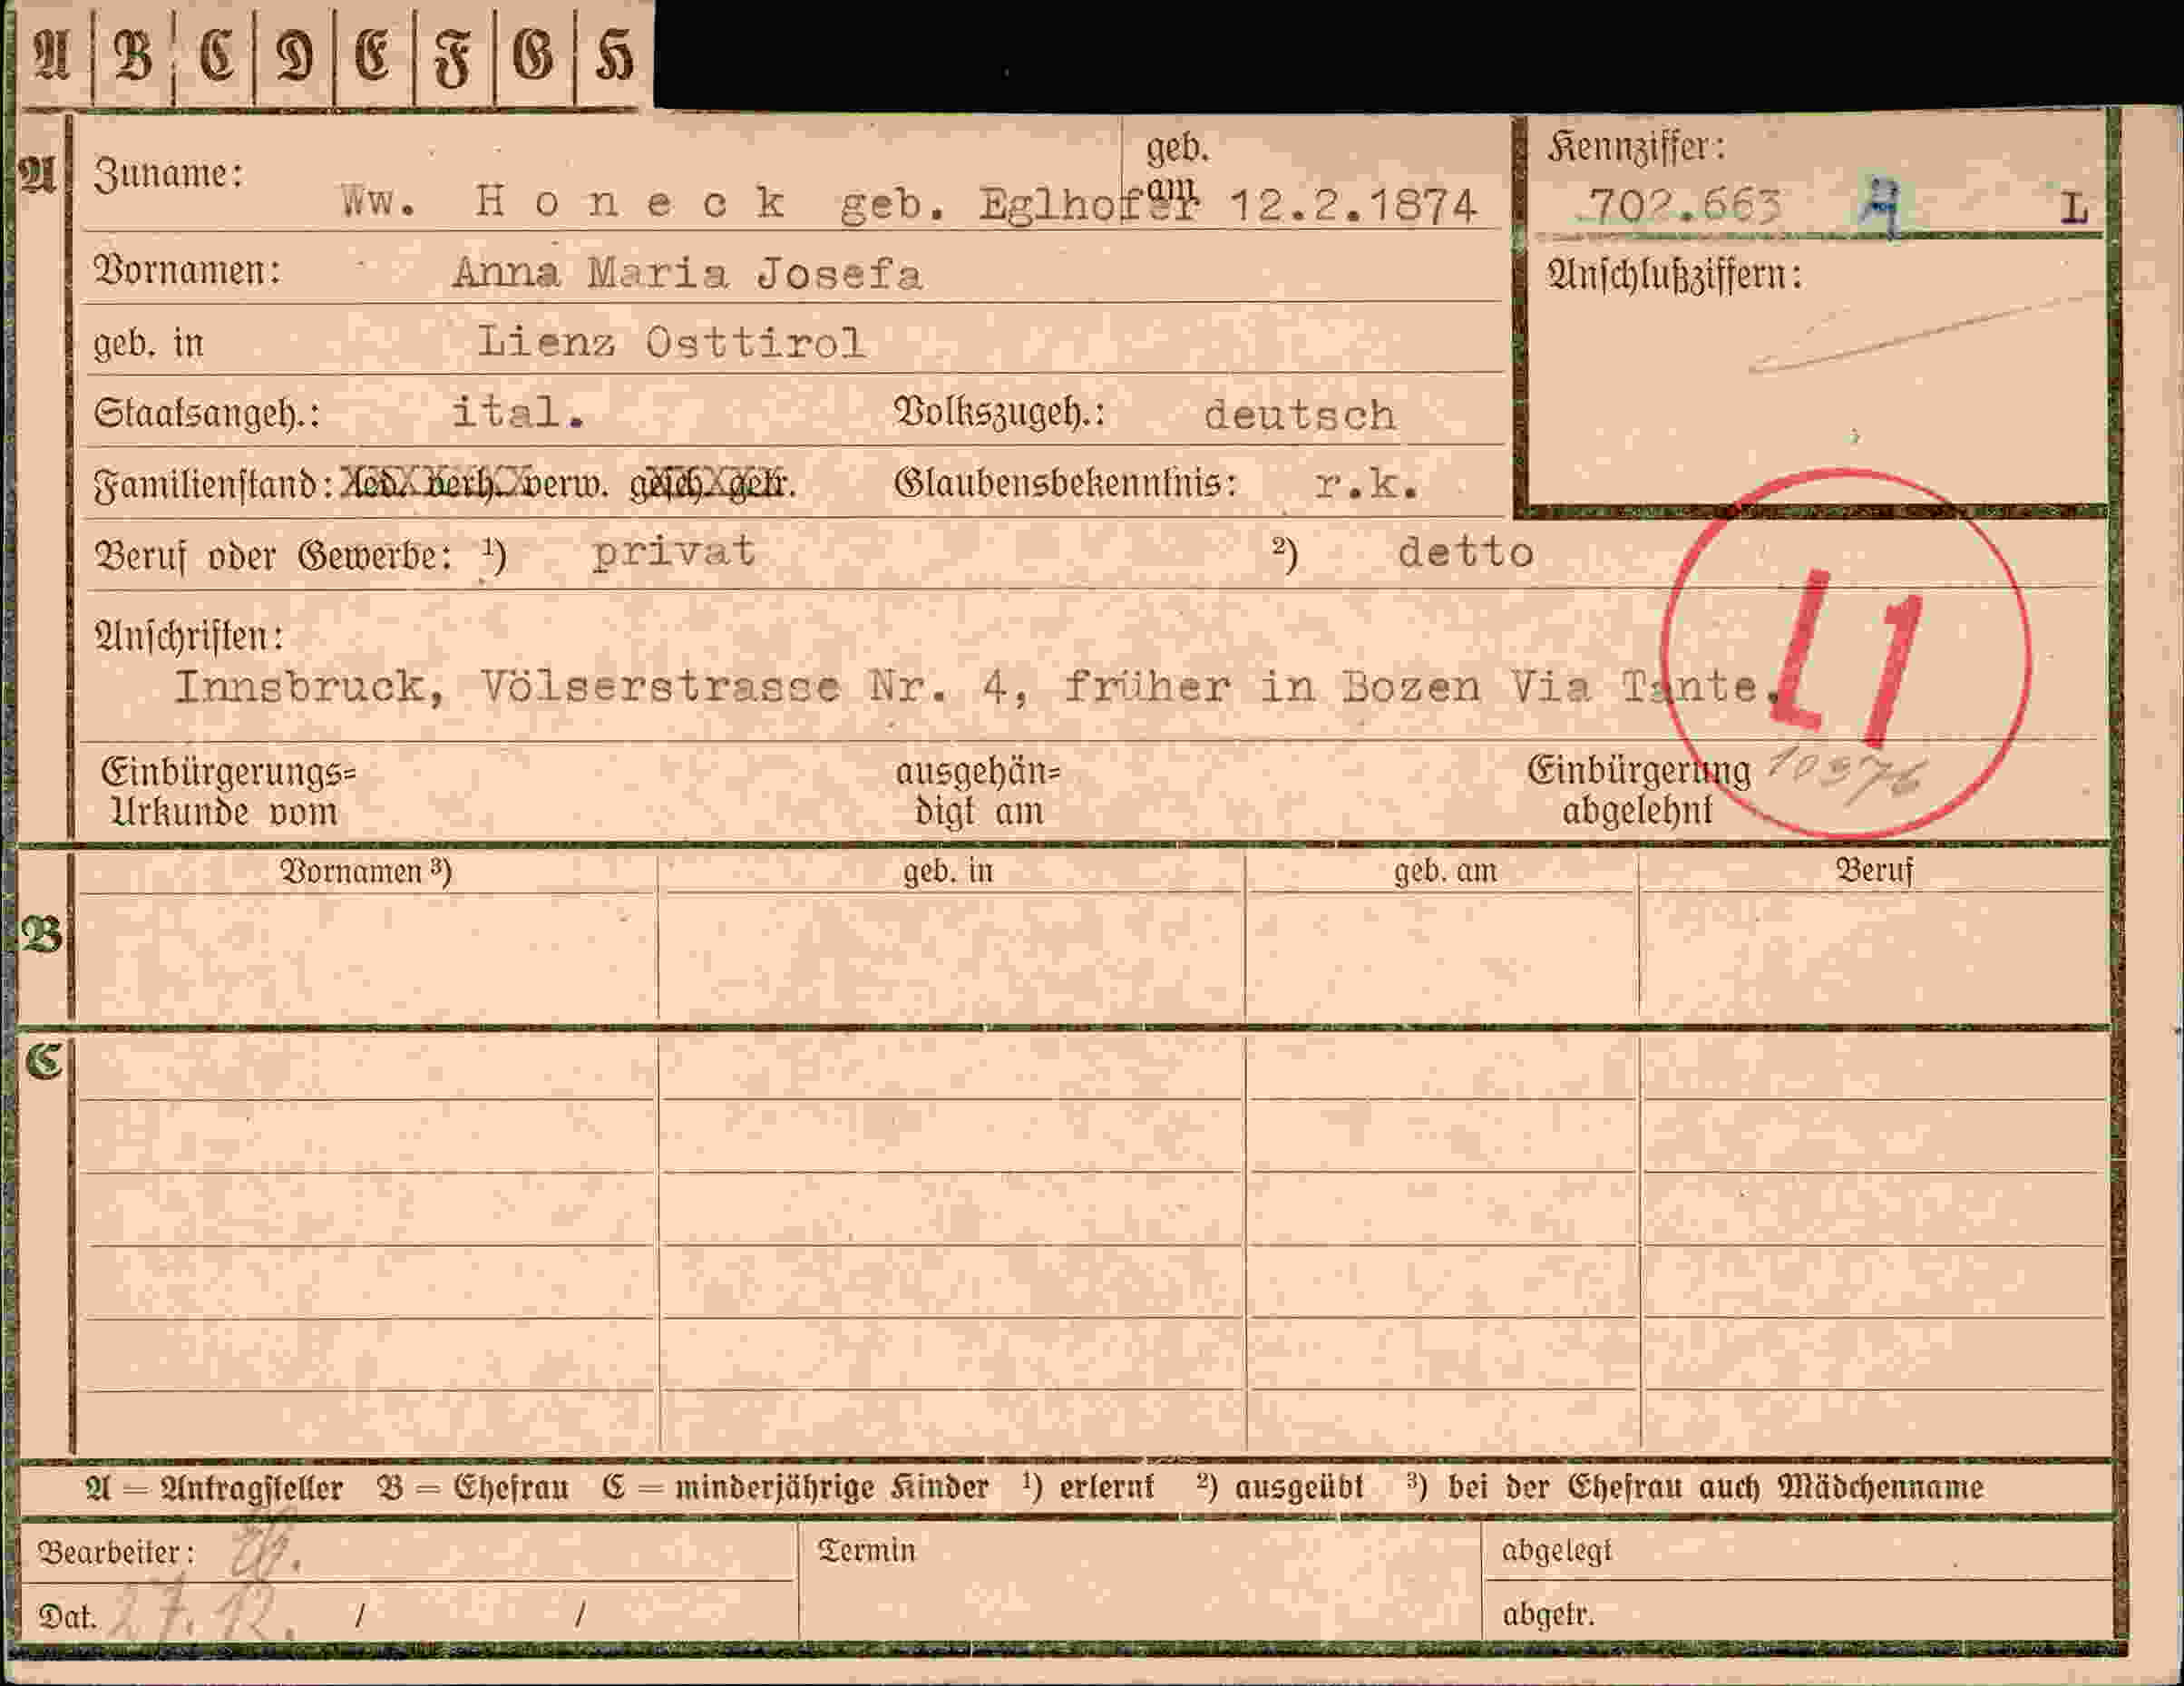 A B C D E F G H
A Zuname: Ww. Honeck geb. Eglhofer geb. am 12.2.1874 Kennziffer: 702.663 L
Vornamen: Anna Maria Josefa Anschlußziffern:
geb. in Lienz Osttirol
Staatsangeh.: ital. Volkszugeh.: deutsch
Familienstand: led. verh. verw. gesch. getr. Glaubensbekenntnis: r.k.
Beruf oder Gewerbe: ¹) privat ²) detto
L1
Anschriften:
Innsbruck, Völserstrasse Nr. 4, früher in Bozen Via Tante.
Einbürgerungs= ausgehän= Einbürgerung 10376
Urkunde vom digt am abgelehnt
Vornamen ³) geb. in geb. am Beruf
B
C
A = Antragsteller B = Ehefrau C = minderjährige Kinder ¹) erlernt ²) ausgeübt ³) bei der Ehefrau auch Mädchenname
Bearbeiter: Termin abgelegt
Dat. 27.12. / / abgetr.